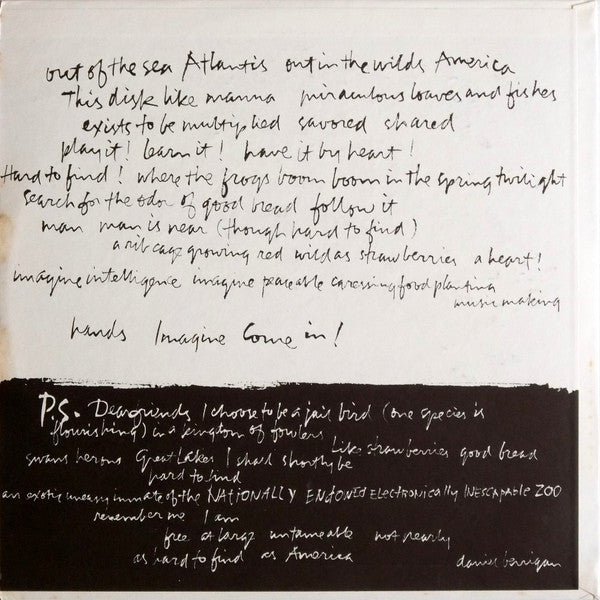 out of the sea Atlantis out in the wilds America
This disk like manna miraculous loaves and fishes
exists to be multiplied savored shared
play it! learn it! have it by heart!
Hard to find! where the frogs boom boom in the spring twilight
search for the odor of good bread follow it
man man is near (though hard to find)
a rib cage growing red wild as strawberries a heart!
imagine intelligence imagine peaceable caressing food planting
music making
hands Imagine Come in!
P.S. Dear friends I choose to be a jail bird (one species is
flourishing) in a kingdom of fowlers
like strawberries good bread
swans herons Great Lakes I shall shortly be
hard to find
an exotic uneasy inmate of the NATIONALLY ELECTRONICALLY INESCAPABLE ZOO
remember me I am
free at large untameable not nearly
as hard to find as America
daniel berrigan